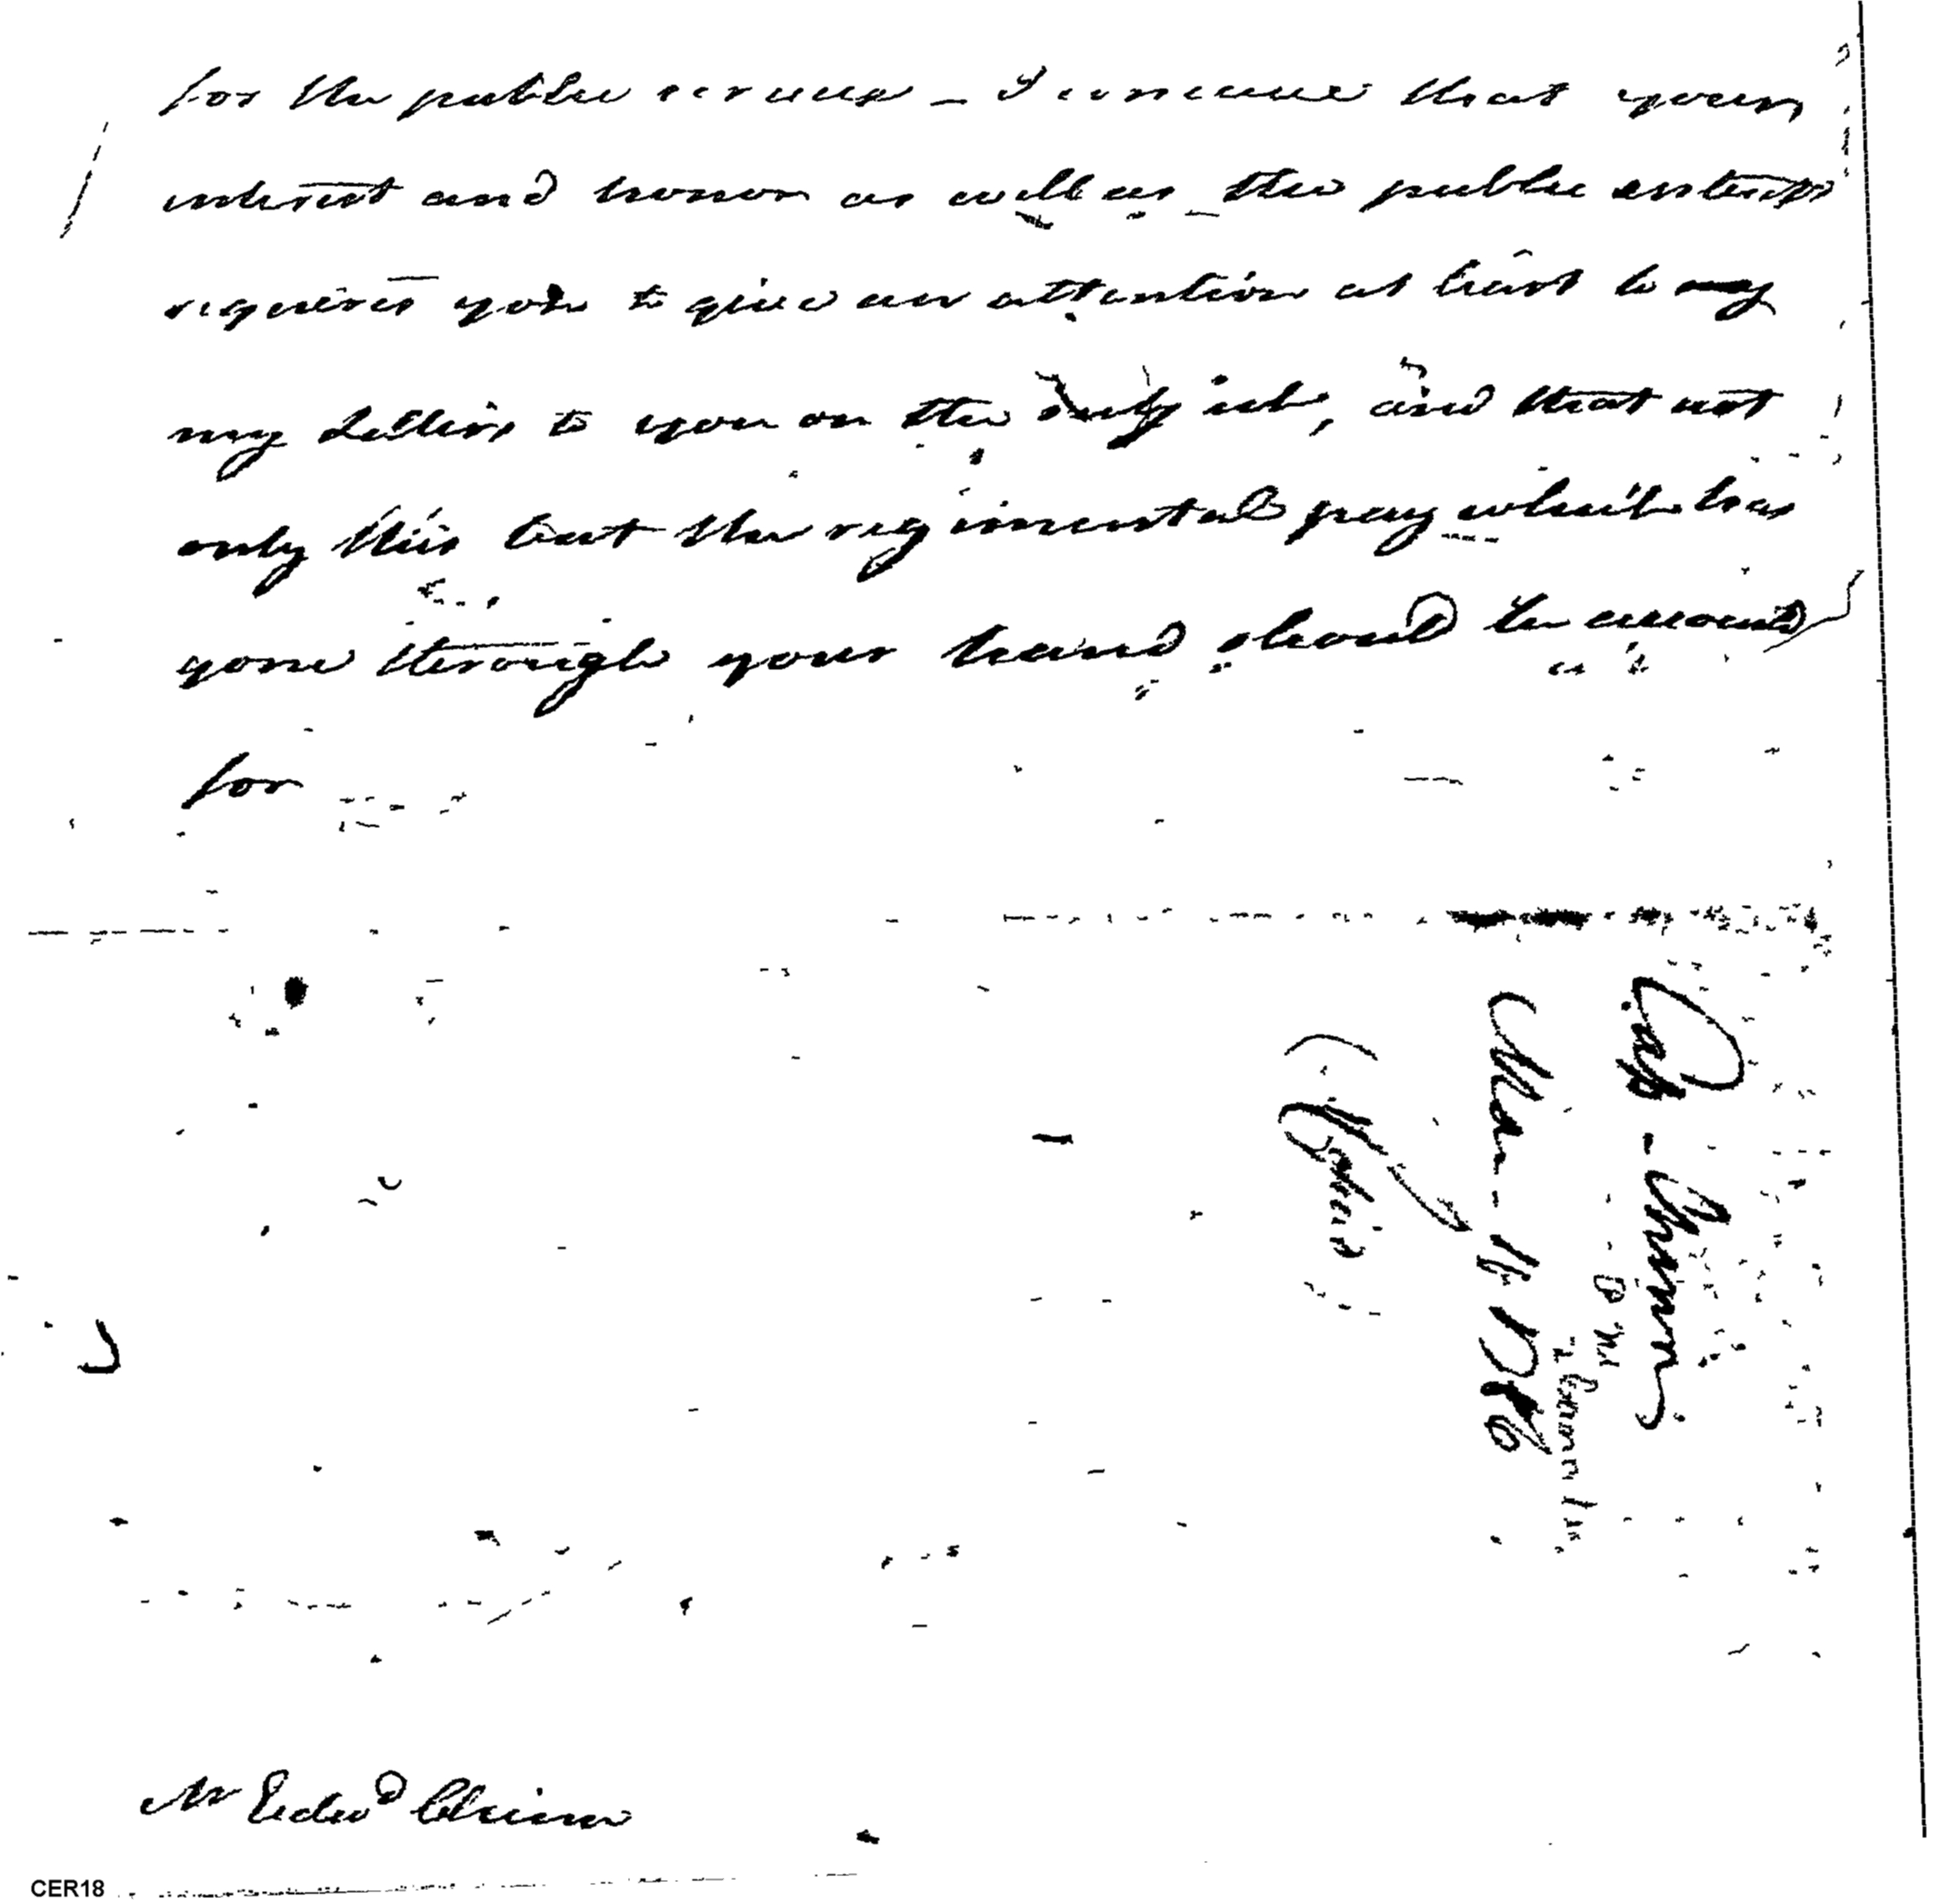 for the public services – I conceive that your
interest and honor as well as the public interest
requires you to give an attention at least to my
my Letters to you on the subject, and that not
only this but the regimental pay which has
gone through your hand should be accounted
for
Cap - Chinn
Mar - 16
(Copied)
Mr Edwd Chinn
CER18